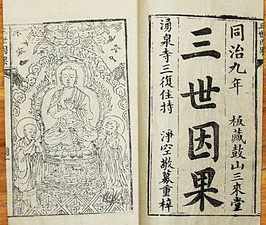 同治九年 板藏鼓山三來堂
三世因果
湧泉寺三復住持 淨空敬募重梓
三世因果